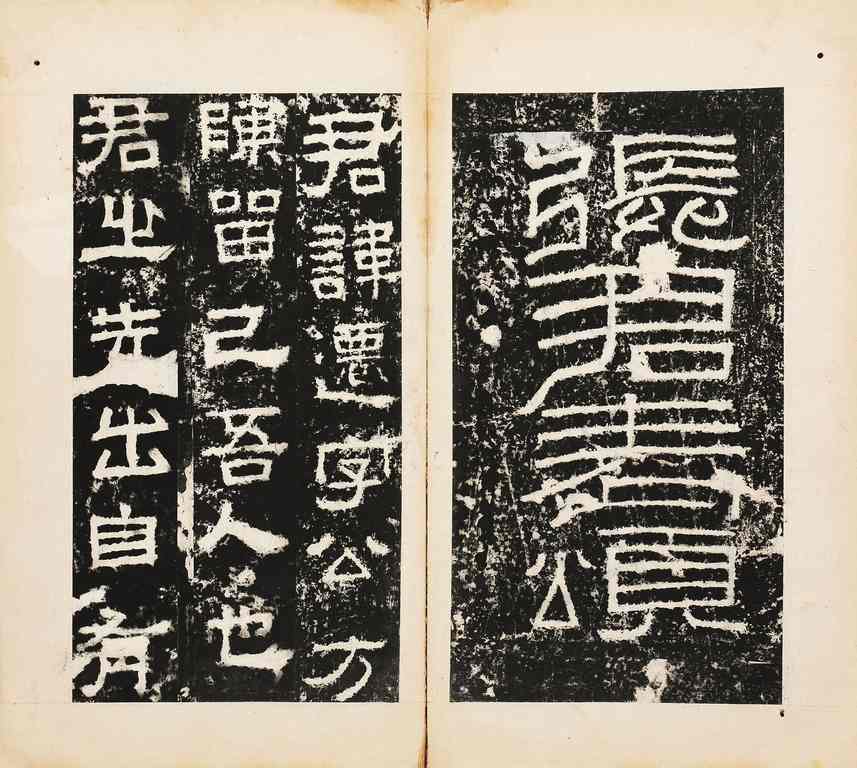 張君表頌
君諱遷字公方
陳留己吾人也
君之先出自有